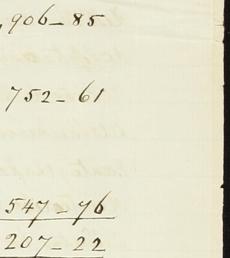 ,906-85
752-61
547-76
207-22